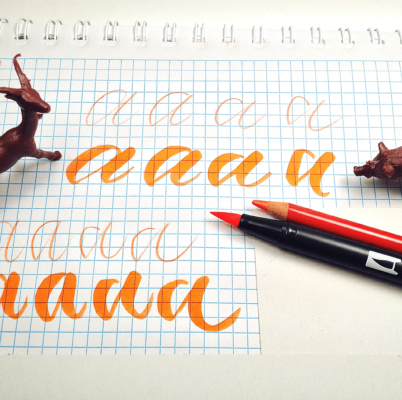 a a a a
aaa a
aaaa
aaaa